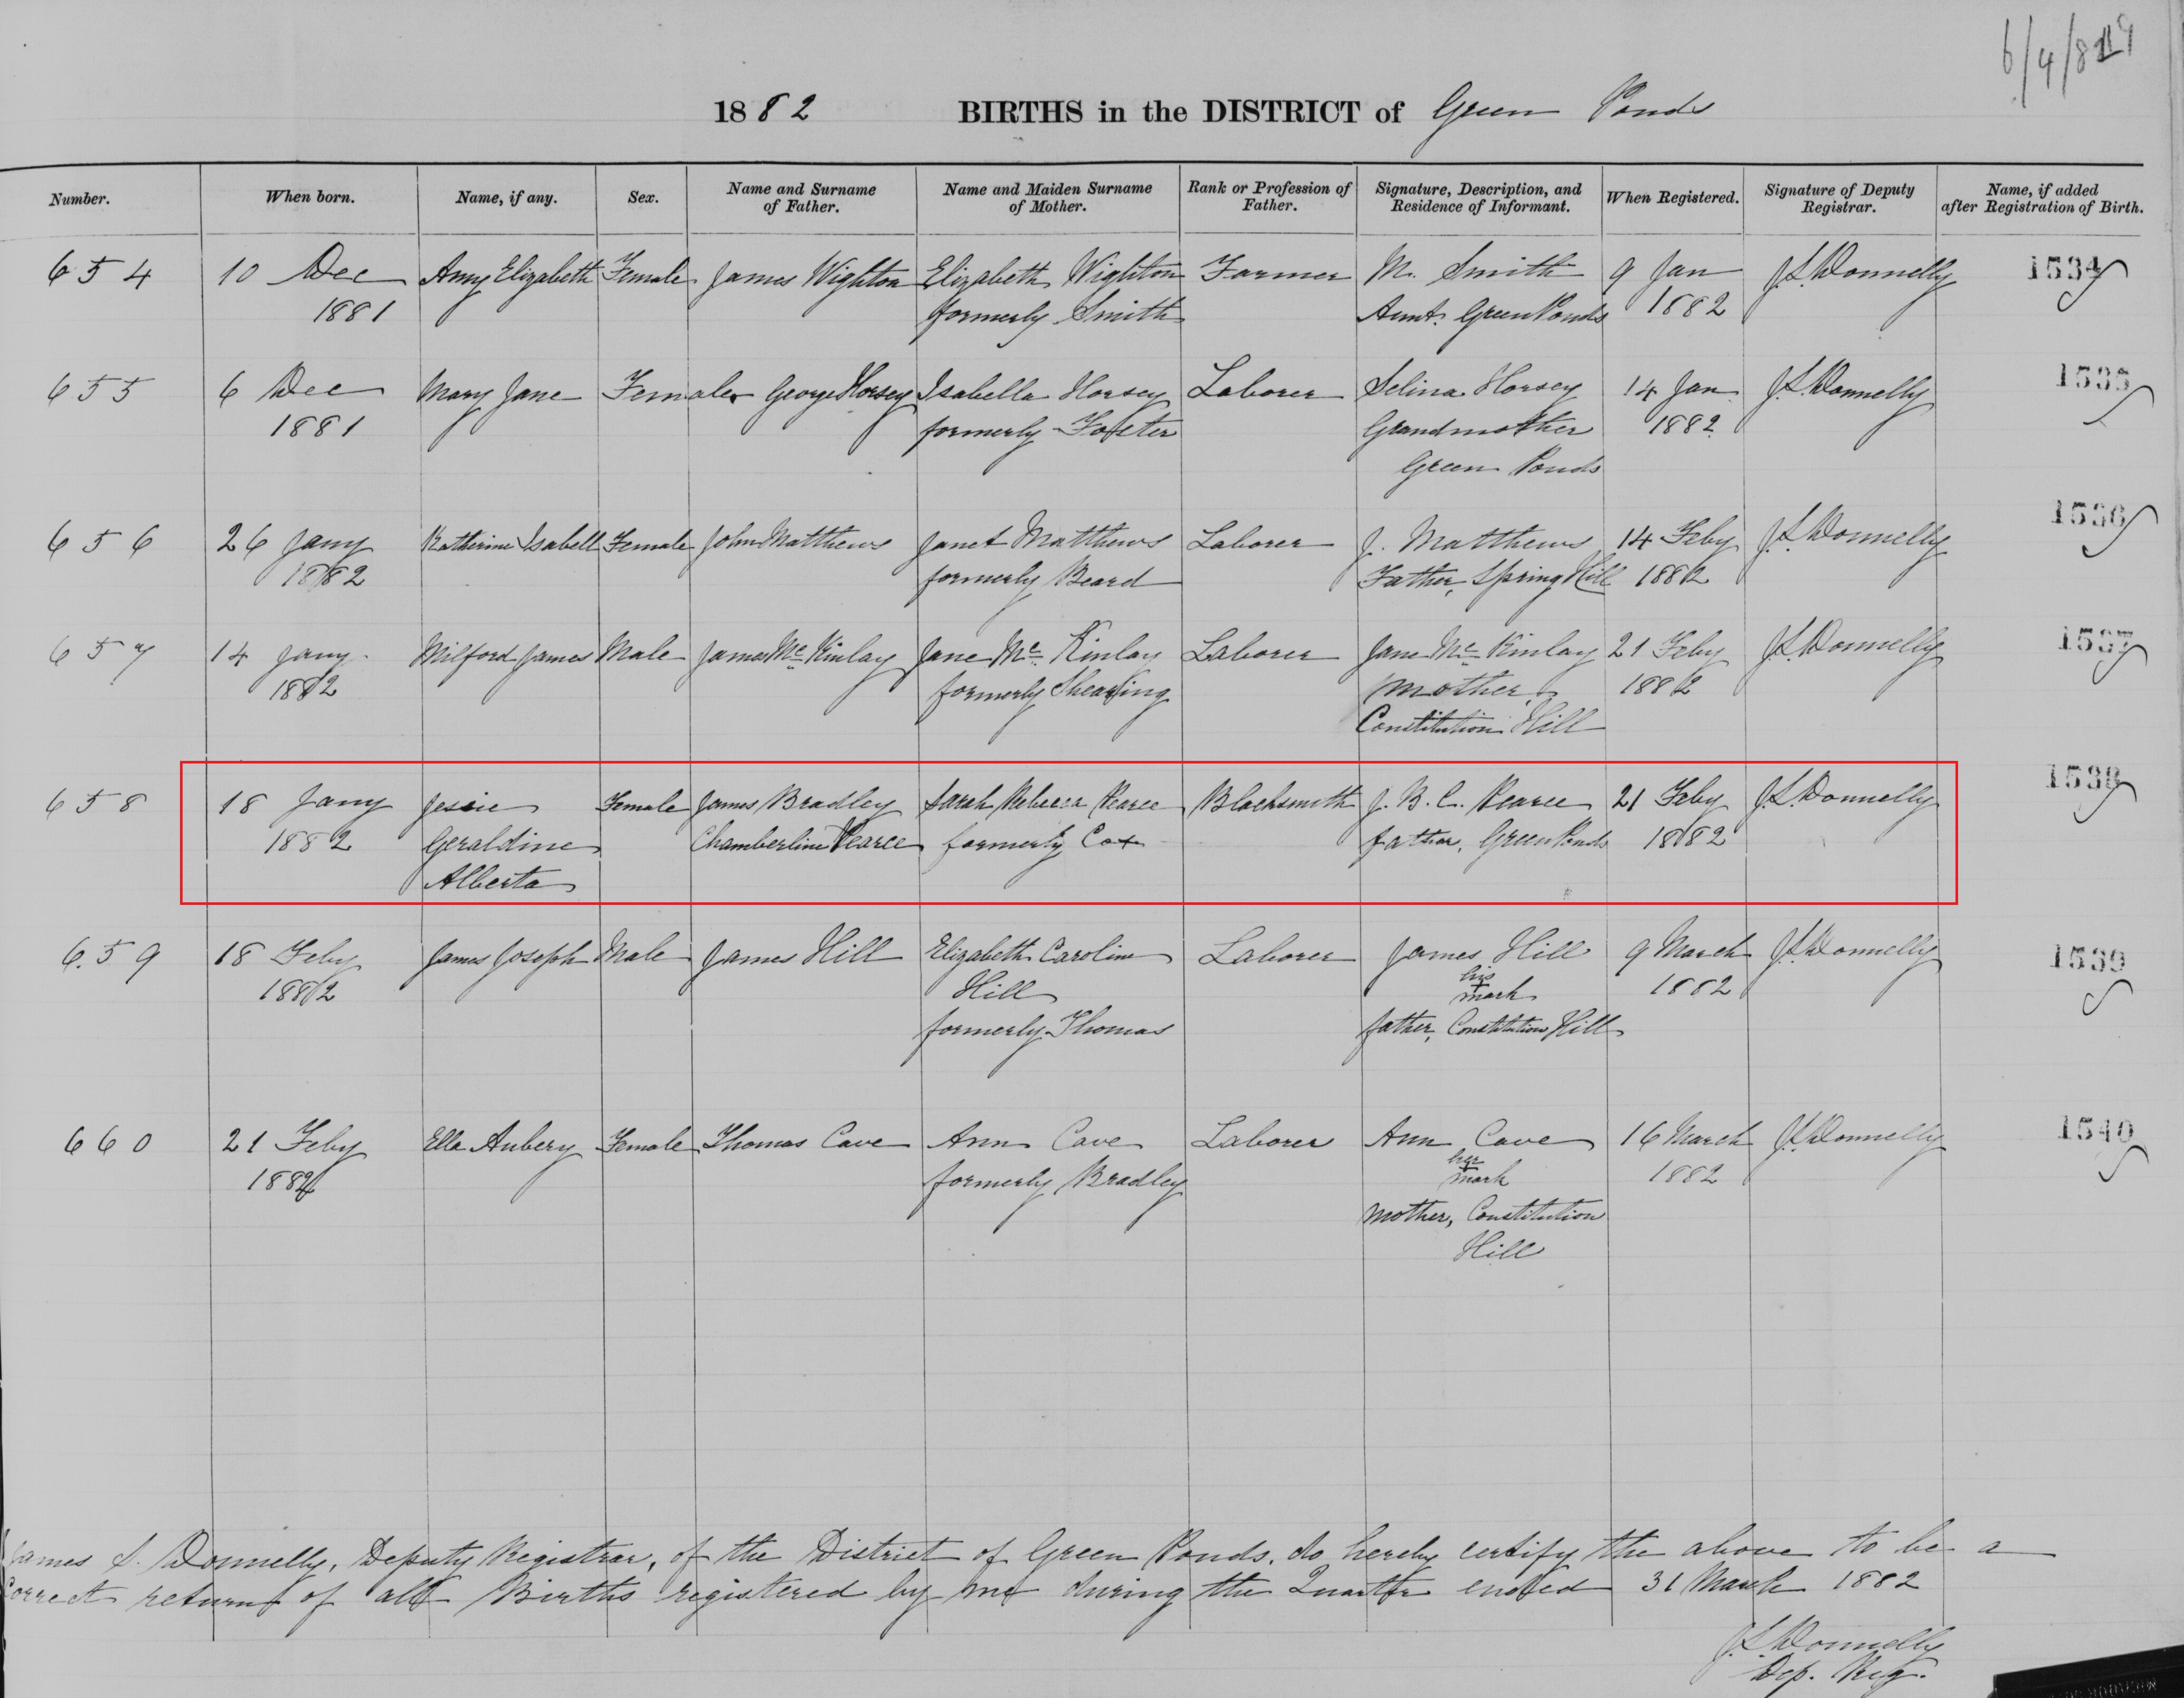 6/4/82
1882 BIRTHS in the DISTRICT of Green Ponds
Number. When born. Name, if any. Sex. Name and Surname of Father. Name and Maiden Surname of Mother. Rank or Profession of Father. Signature, Description, and Residence of Informant. When Registered. Signature of Deputy Registrar. Name, if added after Registration of Birth.
654 10 Dec Amy Elizabeth Female James Wighton Elizabeth Wighton Farmer M. Smith 9 Jan J.S. Donnelly 1534
1881 formerly Smith Aunt. Green Ponds 1882
655 6 Dec Mary Jane Female George Horsey Isabella Horsey Laborer Selina Horsey 14 Jan J.S. Donnelly 1535
1881 formerly Foster Grandmother 1882
Green Ponds
656 26 Jany Katherine Isabell Female John Matthews Janet Matthews Laborer J. Matthews 14 Feby J.S. Donnelly 1536
1882 formerly Beard Father, Spring Hill 1882
657 14 Jany Milford James Male James Mc Kinlay Jane Mc Kinlay Laborer Jane Mc Kinlay 21 Feby J.S. Donnelly 1537
1882 formerly Shearing Mother, 1882
Constitution Hill
658 18 Jany Jessie Female James Bradley Sarah Rebecca Pearce Blacksmith J. B. C. Pearce 21 Feby J.S. Donnelly 1538
1882 Geraldine Chamberline Pearce formerly Cox father, Green Ponds 1882
Alberta
659 18 Feby James Joseph Male James Hill Elizabeth Caroline Laborer James Hill 9 March J.S. Donnelly 1539
1882 Hill his mark 1882
formerly Thomas father, Constitution Hill
660 21 Feby Ella Aubery Female Thomas Cave Ann Cave Laborer Ann Cave 16 March J.S. Donnelly 1540
1882 formerly Bradley her mark 1882
Mother, Constitution
Hill
James S. Donnelly, Deputy Registrar, of the District of Green Ponds, do hereby certify the above to be a
Correct return of all Births registered by me during the Quarter ended 31 March 1882
J.S. Donnelly
Dep. Reg.